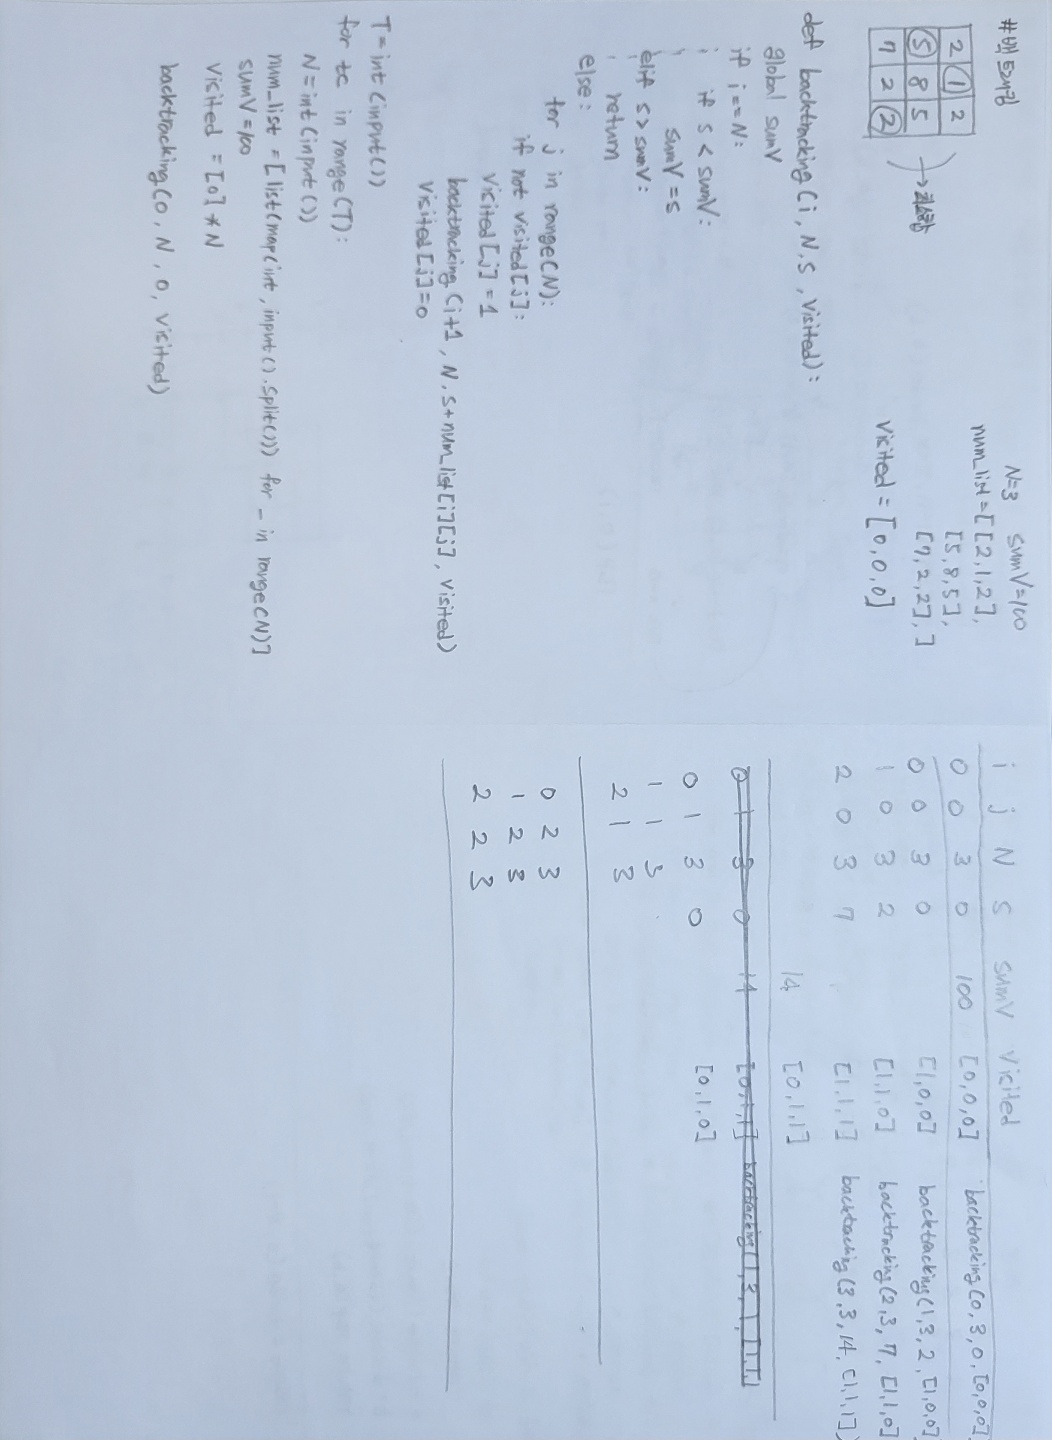 #백트래킹
2 1 2
5 8 5
7 2 2
→최소합
N=3 sumV=100
num_list=[[2,1,2],
[5,8,5],
[7,2,2],]
Visited = [0,0,0]
def backtracking(i, N, s, visited):
global sumV
if i==N:
if s < sumV:
sumV = s
elif s > sumV:
return
else:
for j in range(N):
if not visited[j]:
visited[j] = 1
backtracking(i+1, N, s+num_list[i][j], visited)
visited[j]=0
T=int(input())
for tc in range(T):
N=int(input())
num_list = [list(map(int, input().split())) for _ in range(N)]
sumV=100
visited = [0] * N
backtracking(0, N, 0, visited)
i j N S sumV Visited
0 0 3 0 100 [0,0,0] backtracking(0, 3, 0, [0,0,0]
0 0 3 0 [1,0,0] backtracking(1,3,2,[1,0,0]
1 0 3 2 [1,1,0] backtracking(2,3, 7, [1,1,0]
2 0 3 7 [1,1,1] backtacking(3,3,14, [1,1,1])
14 [0,1,1]
0 1 3 0 14 [0,1,1]
0 1 3 0 [0,1,0]
1 1 3
2 1 3
0 2 3
1 2 3
2 2 3